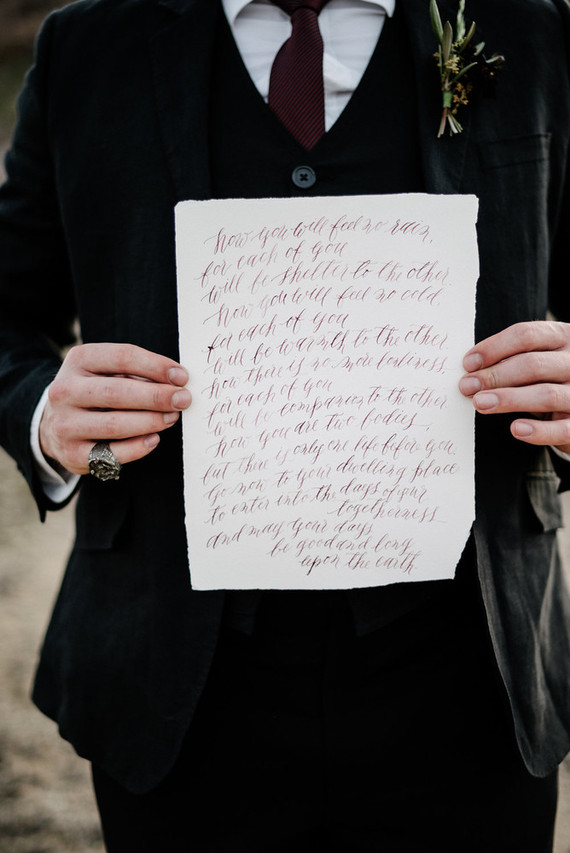 now you will feel no rain,
for each of you
will be shelter to the other.
now you will feel no cold,
for each of you
will be warmth to the other
now there is no more loneliness,
for each of you
will be companion to the other.
now you are two bodies,
but there is only one life before you.
Go now to your dwelling place
to enter into the days of your
togetherness
and may your days
be good and long
upon the earth